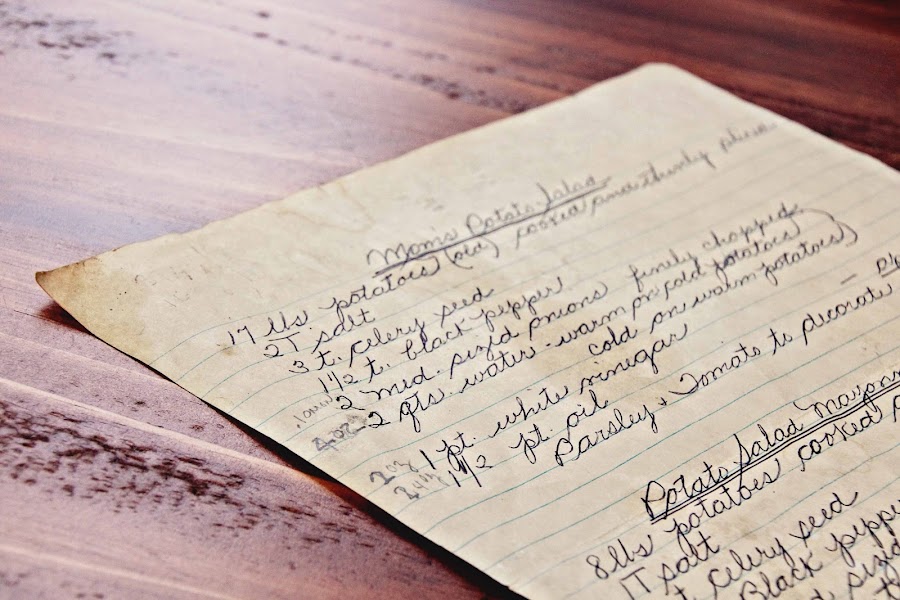 Mom's Potato Salad
17 lbs potatoes (old) cooked and thinly slice
2T. salt
3 t. celery seed
1 1/2 t. black pepper
2 med. sized onions finely chopped
2 qts. water - warm on cold potatoes
cold on warm potatoes)
1 pt. white vinegar
1 1/2 pt. oil
Parsley + Tomato to decorate
Potato Salad Mayonn
8 lbs potatoes cooked
1T salt
t. celery seed
Black peppe
sized